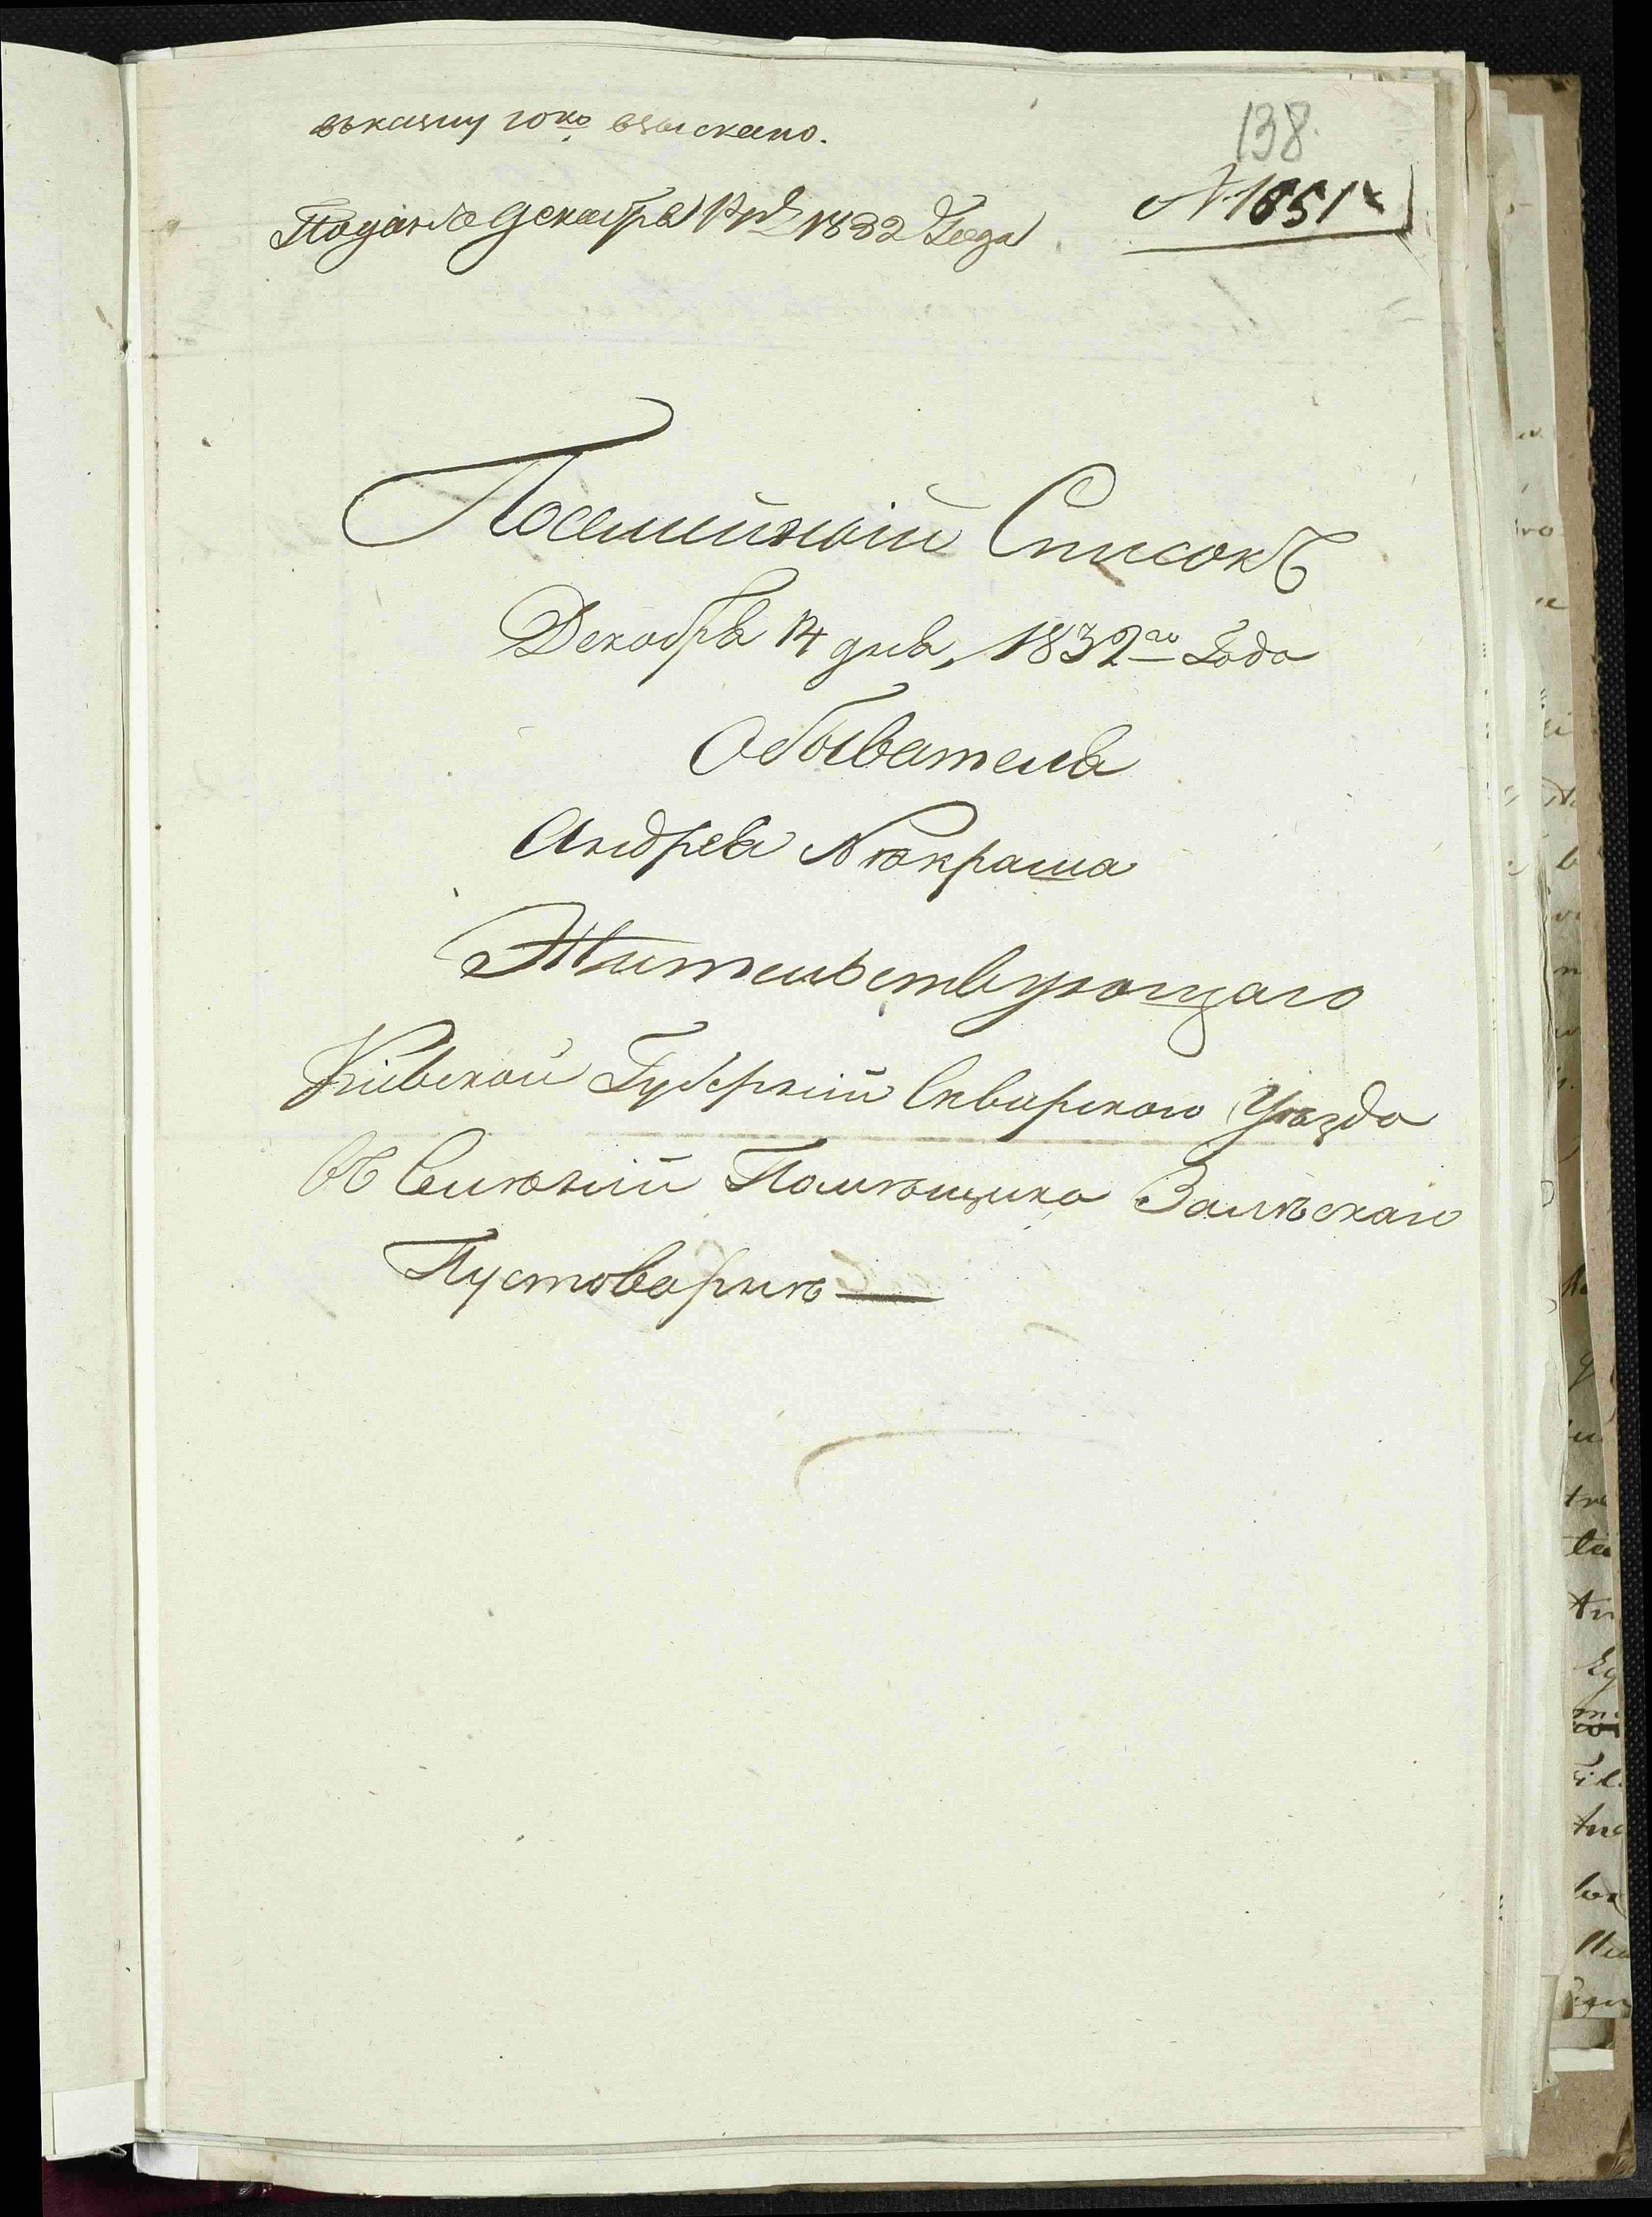 138.
въ казну 10 ко взыскано.
Поданъ Декабря 14 д 1832 Года
N 1051
Посемѣйный Списокъ
Декабря 14 дня, 1832го Года
Обывателя
Андрея Нѣкраша
Жительствующаго
Кіевской Губерніи Сквирского Уѣзда
въ Селѣніи Помѣщика Залѣскаго
Пустоварнѣ